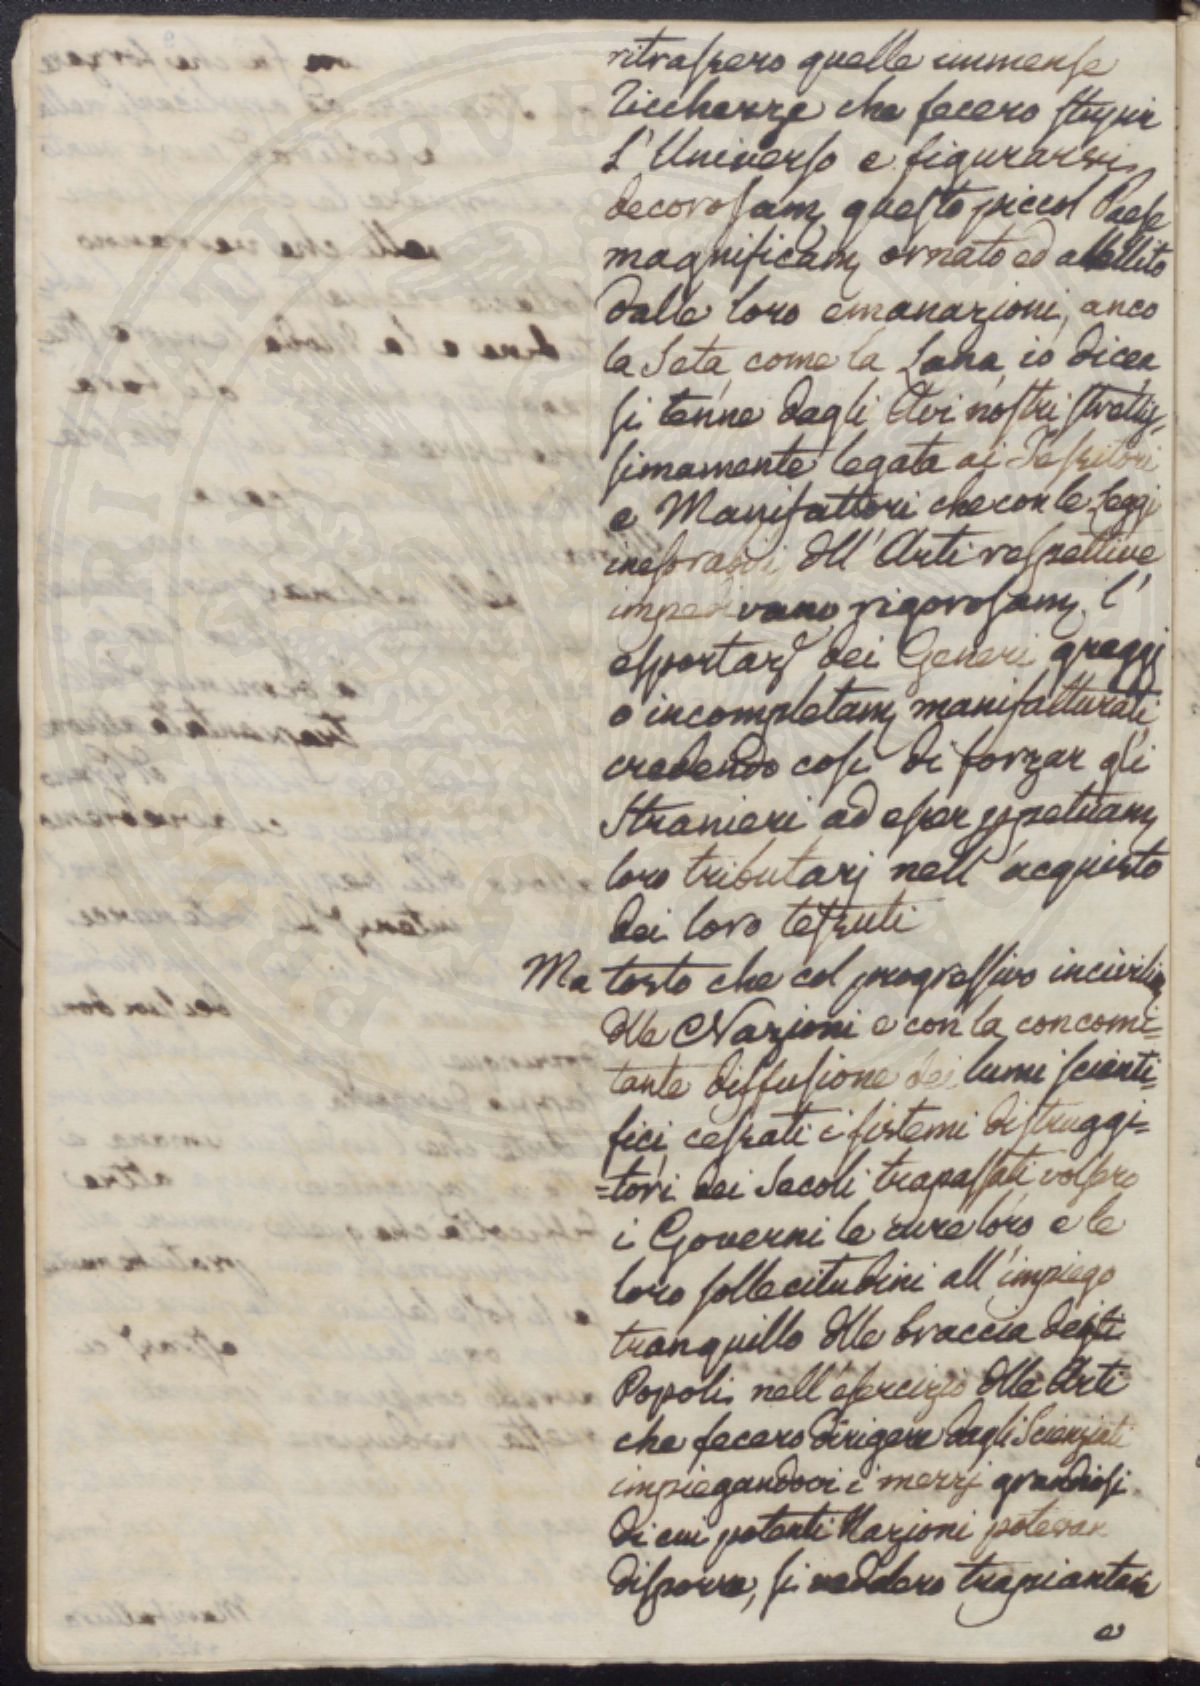 ritrassero quelle immense
Ricchezze che fecero stupir
L'Universo e figurarsi
decorosam. questo piccol Paese
magnificam. ornato ed abbellito
dalle loro emanazioni, anco
la Seta, come la Lana, io dicea
si tenne dagli Avi nostri strettis-
simamente legata ai Tessitori
e Manifattori che con le Leggi
inesorabili dll' Arti respettive
impedivano rigorosam. l'
esportaz. dei Generi greggi
o incompletam. manifatturati,
credendo così di forzar gli
Stranieri ad esser ppetuam.
loro tributarj nell'acquisto
dei loro tessuti
Ma tosto che col progressivo inciviliz.
dlle Nazioni e con la concomi=
tante diffusione dei lumi scienti=
fici cessati i sistemi distruggi=
=tori dei Secoli trapassati volsero
i Governi le cure loro e le
loro sollecitudini all'impiego
tranquillo dlle braccia degli
Popoli nell'esercizio dlle Arti
che fecero dirigere dagli Scienziati
impiegandovi i mezzj grandiosi
di cui potenti Nazioni potevan
disporre, si veddero trapiantare
e